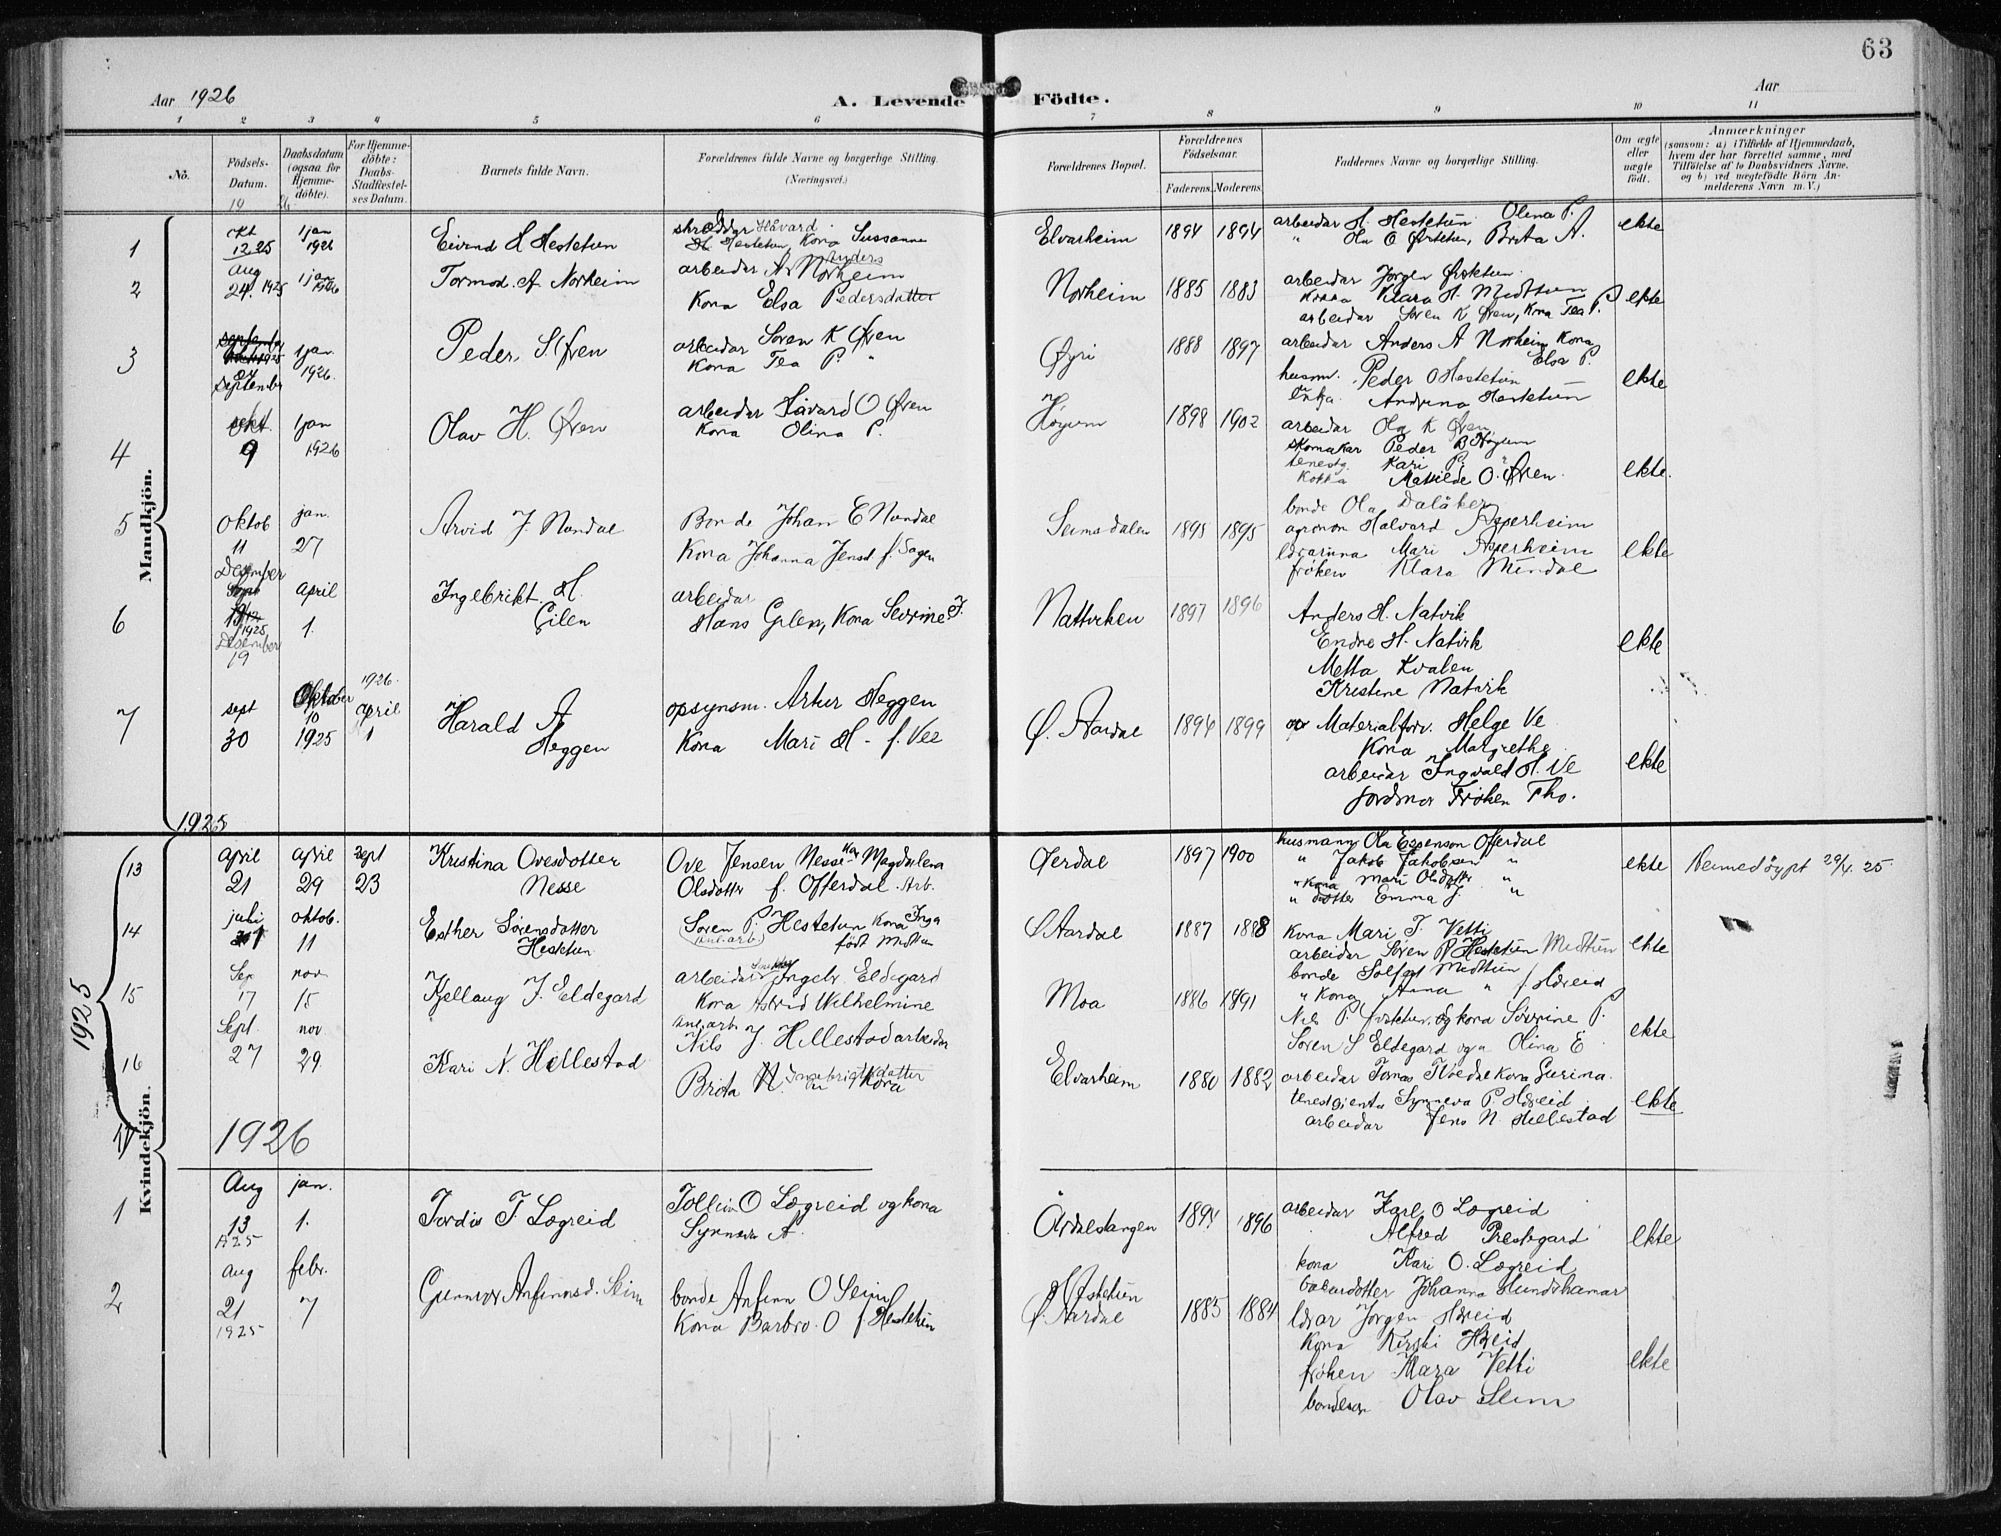 63
Aar 1926
A. Levende Födte.
Aar
1 2 3 4 5 6 7 8 9 10 11
No.
Födsels-Datum.
Daabsdatum (ogsaa for Hjemmedöbte).
For Hjemmedöbte: Daabs-Stadfæstelses Datum.
Barnets fulde Navn.
Forældrenes fulde Navne og borgerlige Stilling. (Næringsvei.)
Forældrenes Bopæl.
Forældrenes Födselsaar.
Faderens. Moderens.
Faddernes Navne og borgerlige Stilling.
Om ægte eller uægte födt.
Anmærkninger
(saasom: a) i Tilfælde af Hjemmedaab, hvem der har forrettet samme, med Tilföielse af to Daabsvidners Navne. og b) ved uægtefödte Börn Anmelderens Navn m. V.)
Mandkjön.
1 okt 12.25 1 jan 1926 Eivind H Hestetun
skræddar Håvard
Hestetun, Kona Sussanna
Elvarheim 1894 1894
arbeidar H. Hestetun Olina P.
" Ola O Hestetun, Brita A.
ekte
2 Aug 24. 1925 1 jan 1926 Tormod A Norheim
arbeidar Anders Norheim
Kona Elsa Pedersdatter
Norheim 1885 1883
arbeidar Jørgen
Klara H. Midttun
arbeidar Søren K Øren, Kona Tea P.
ekte
3 september 1 jan 1926. Peder S Øren
arbeidar Søren K Øren
Kona Tea P. "
Øyri 1888 1897
arbeidar Anders A Norheim Kona
Elsa P.
husm. Peder O Hestetun
Enkja Andrina Hestetun
ekte
4 Okt. 9 1 jan 1926 Olav H. Øren
arbeidar Håvard O Øren
Kona Olina P.
Høyum 1898 1902
arbeidar Ola K Øren
skomakar Peder B Høyum
Kari P.
Matilde O. Øren
ekte.
5 Oktob 11 jan. 27 Arvid J. Nundal
Bonde Johan E Nundal
Kona Johanna Jensd f. Sagen
Seimsdalen 1895 1895
bonde Ola Dalåker
agronom Halvard Asperheim
lærarinna Mari Asperheim
frøken Klara Nundal
ekte
6 Desember 1925 Desember 19 April 1. Ingebrikt H.
Gilen
arbeidar
Hans Gilen, Kona Severine J.
Nattviken 1897 1896
Anders H. Natvik
Endre H. Natvik
Metta Kvalen
Kristine Natvik
ekte
7 sept 30 Oktober 10 1925 1926. april 1 Harald A
Heggen
opsynsm. Artur Heggen
Kona Mari H - f. Vee
Ø. Aardal 1894 1899
Materialforv. Helge Ve
Kona Margrethe
arbeidar Ingvald H. Ve
jordmor Frøken Tho.
ekte
1925
1925
Kvindekjön.
13 April 21 april 29 sept 23 Kristina Ovesdotter
Nesse
Ove Jensen Nesse Kona Magdalena
Olsdotter f. Offerdal. Arb.
Øferdal 1897 1900
Husmann Ola Espenson Offerdal
" Jakob Jakobsen "
" Kona Mari Olsdotter "
" dotter Emma J. "
ekte Heimedøypt 29/4. 25
14 juli oktob. 11 Esther Sørensdotter
Hestetun
Søren P. Hestetun Kona Inga
født Midttun
Ø Aardal 1887 1888
Kona Mari T. Vetti
arbeidar Søren P Hestetun Midttun
bonde Solfest Midttun
" Kona Anna " f Hæreid
ekte
15 Sep 17 nov 15 Kjellaug J. Eldegard
arbeidar Ingebr Eldegard
Kona Astrid Wilhelmine
Moa 1886 1891
Nils P. Hestetun, og kona Severine P.
Søren S Eldegard og Olina E
ekte
16 Sept. 27 nov 29. Kari N. Hellestad
Nils J. Hellestad arbeidar
Brita Ingebrigtsdatter
Kona
Elvarheim 1880 1882
arbeidar Tomas Kona Gurina.
tenestgjenta Synneva P. Hæreid
arbeidar Jens N. Hellestad
ekte
1926
1 Aug 13 1925 jan. 1. Jordis T Lægreid
Tolleiv O Lægreid og kona
Synneva A.
Årdalstangen 1894 1896
arbeidar Karl O Lægreid
Alfred Prestegard
kona Kari O. Lægreid
Johanna Hundshamar
ekte
2 aug 21 1925 febr. 7 Gunnvor Anfinnsd. Seim
bonde Anfinn O Seim
Kona Barbro. O f Hestetun
Hestetun
Ø. Aardal 1885 1884
lærar Jørgen Hæreid
Kona Kirsti Hæreid
frøken Mara Vetti
Olav Seim
ekte